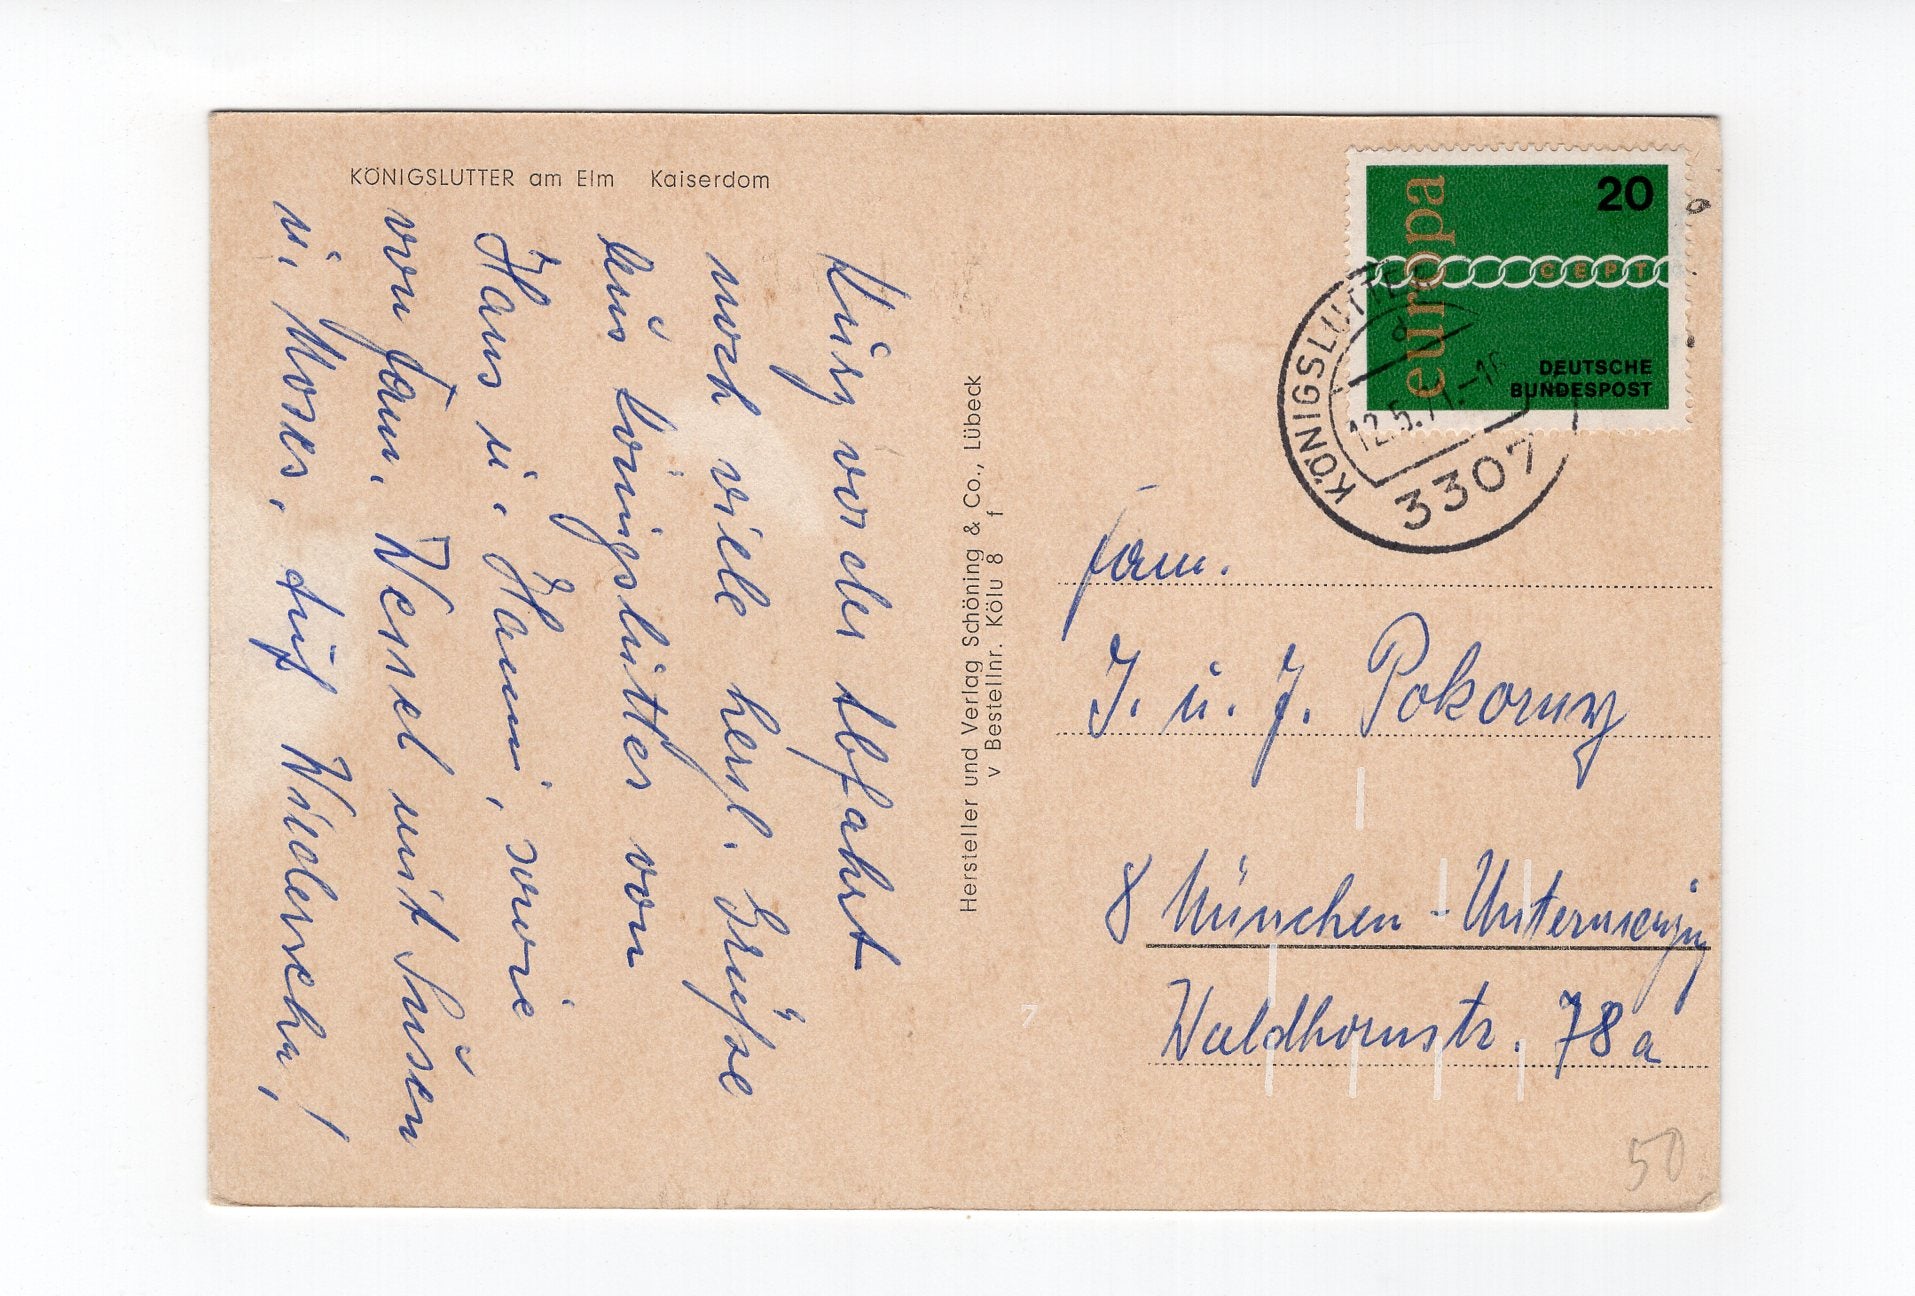 KÖNIGSLUTTER am Elm Kaiserdom
Kurz vor der Abfahrt
noch viele herzl. Grüße
aus Königslutter von
Hans u. Hanni, sowie
von Fam. Wessel mit Susen
u. Moses. Auf Wiederseh'n!
Hersteller und Verlag Schöning & Co., Lübeck
v Bestellnr. Kölu 8 f
europa
20
CEPT
DEUTSCHE
BUNDESPOST
KÖNIGSLUTTER
d
12.5.71.-18
3307
Fam.
J. u. J. Pokorny
8 München-Untermenzing
Waldhornstr. 78a
7
50